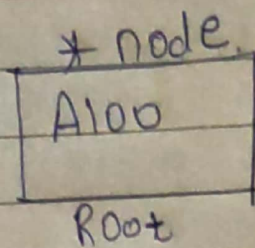 * node.
A100
Root